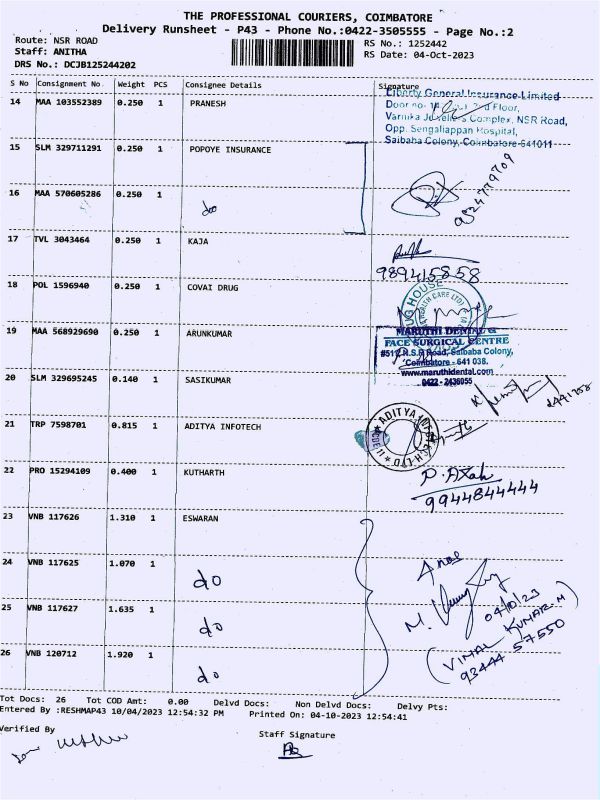 THE PROFESSIONAL COURIERS, COIMBATORE
Delivery Runsheet - P43 - Phone No.:0422-3505555 - Page No.:2
Route: NSR ROAD
Staff: ANITHA
DRS No.: DCJB125244202
RS No.: 1252442
RS Date: 04-Oct-2023
S No Consignment No Weight PCS Consignee Details Signature
14 MAA 103552389 0.250 1 PRANESH
Liberty General Insurance Limited
2nd Floor,
Varnika Jewellers Complex, NSR Road,
Opp. Sengaliappan Hospital,
Saibaba Colony, Coimbatore-641011
15 SLM 329711291 0.250 1 POPOYE INSURANCE
16 MAA 570605286 0.250 1 do
17 TVL 3043464 0.250 1 KAJA
989415858
18 POL 1596940 0.250 1 COVAI DRUG
19 MAA 568929690 0.250 1 ARUNKUMAR
MARUTHI DENTAL &
FACE SURGICAL CENTRE
N.S.R Road, Saibaba Colony,
Coimbatore - 641 038.
www.maruthidental.com
0422 - 2436055
20 SLM 329695245 0.140 1 SASIKUMAR
21 TRP 7598701 0.815 1 ADITYA INFOTECH
ADITYA INFOTECH LTD
22 PRO 15294109 0.400 1 KUTHARTH
9944844444
23 VNB 117626 1.310 1 ESWARAN
24 VNB 117625 1.070 1 do
25 VNB 117627 1.635 1 do
04/10/23
26 VNB 120712 1.920 1 do
(VIMAL KUMAR.M)
93444 57550
Tot Docs: 26 Tot COD Amt: 0.00 Delvd Docs: Non Delvd Docs: Delvy Pts:
Entered By :RESHMAP43 10/04/2023 12:54:32 PM Printed On: 04-10-2023 12:54:41
Verified By
Staff Signature